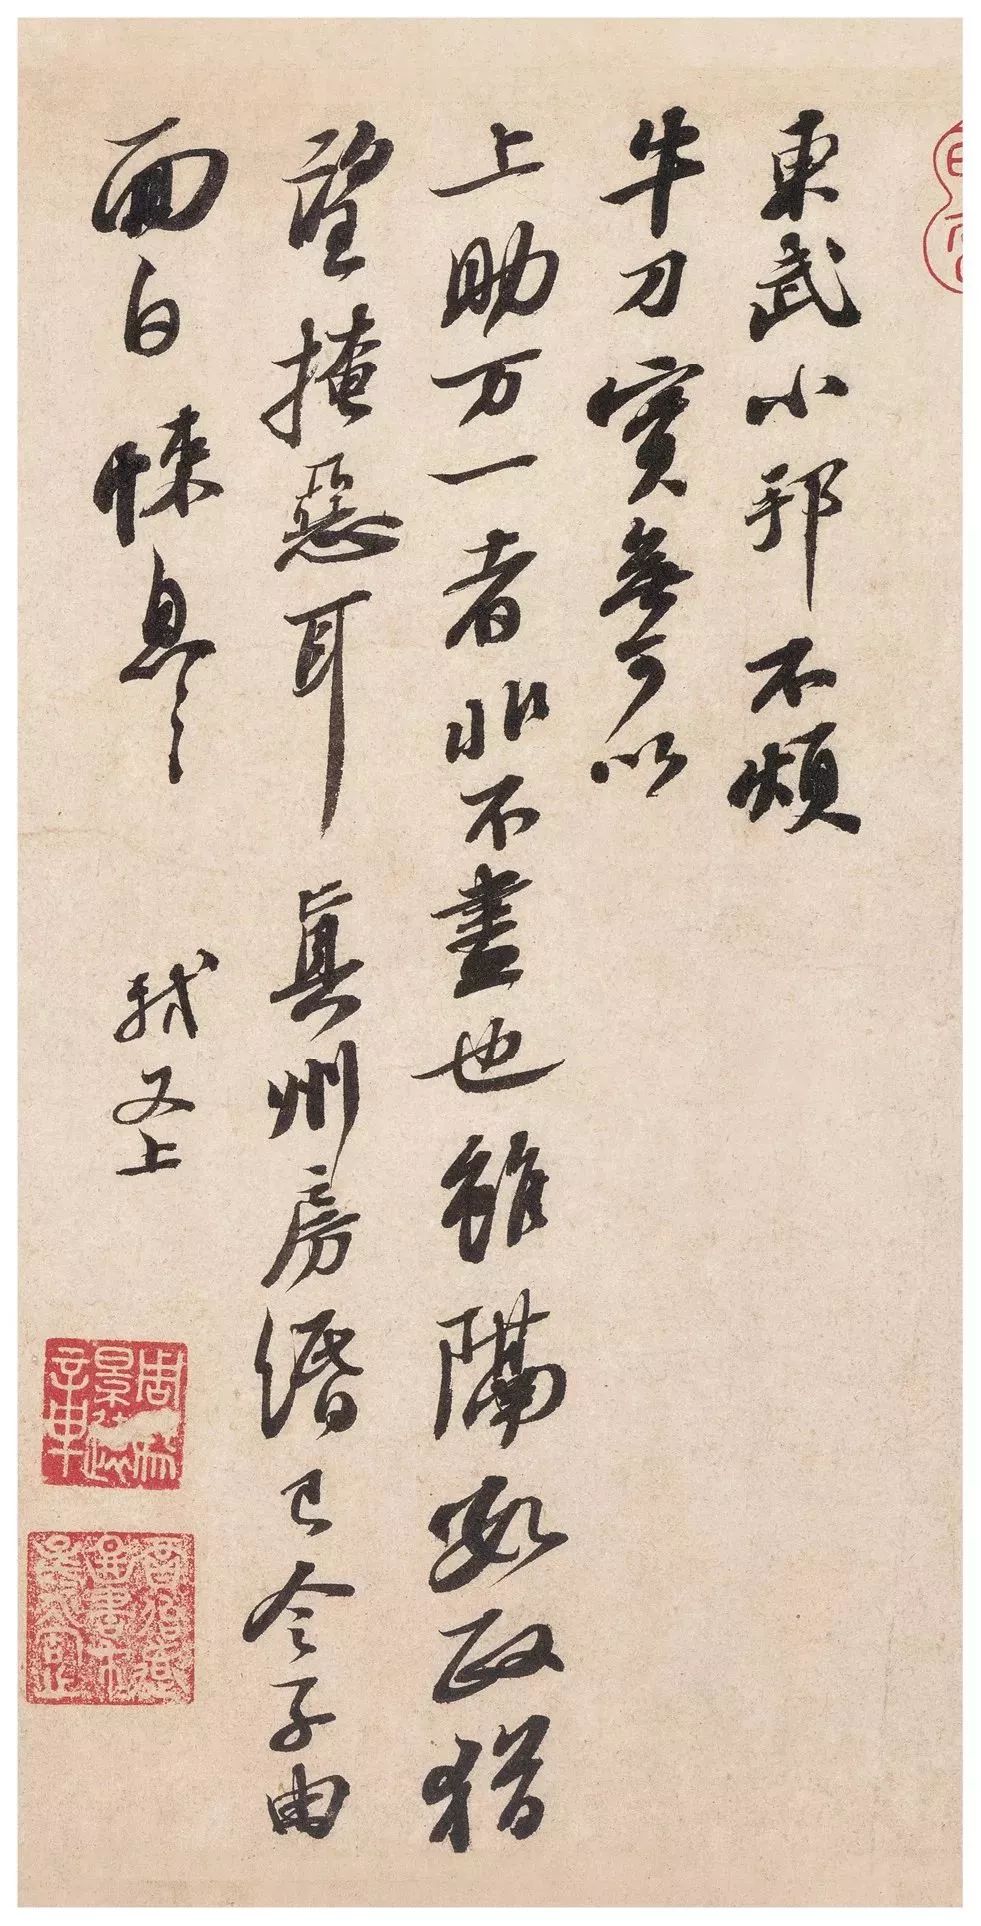 東武小邦不煩
牛刀實無可以
上助万一者非不盡也雖隔數政猶
望掩惡耳 真州房緡已令子由
面白悚息〻 軾又上